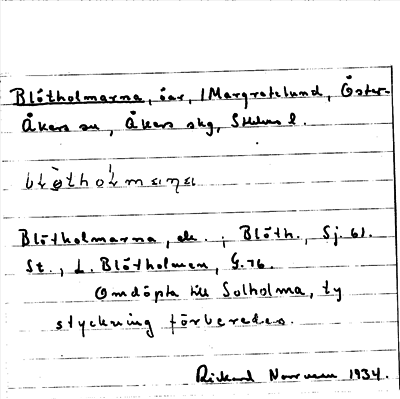 Blötholmarna, öar, /Margretelund, Öster-
Åkers sn, Åkers skg, Sthlms l.
Blötholmarna, de. ; Blöth., Sj. 61.
St., L. Blötholmen, G. 76.
Omdöpta till Solholma, ty
styckning förberedes.
Rickard 1934.